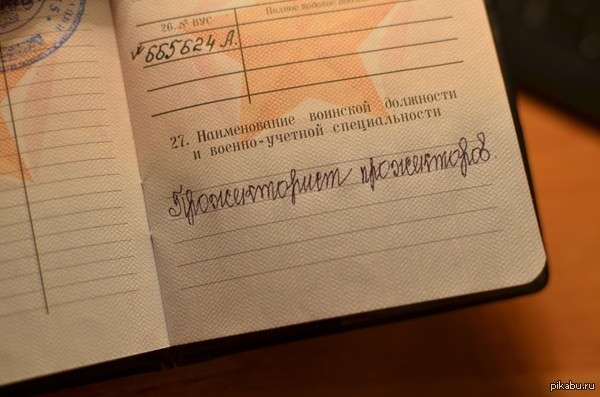 26. № ВУС
№ 665624 А.
27. Наименование воинской должности
и военно-учетной специальности
Прожекторист прожекторов.
pikabu.ru